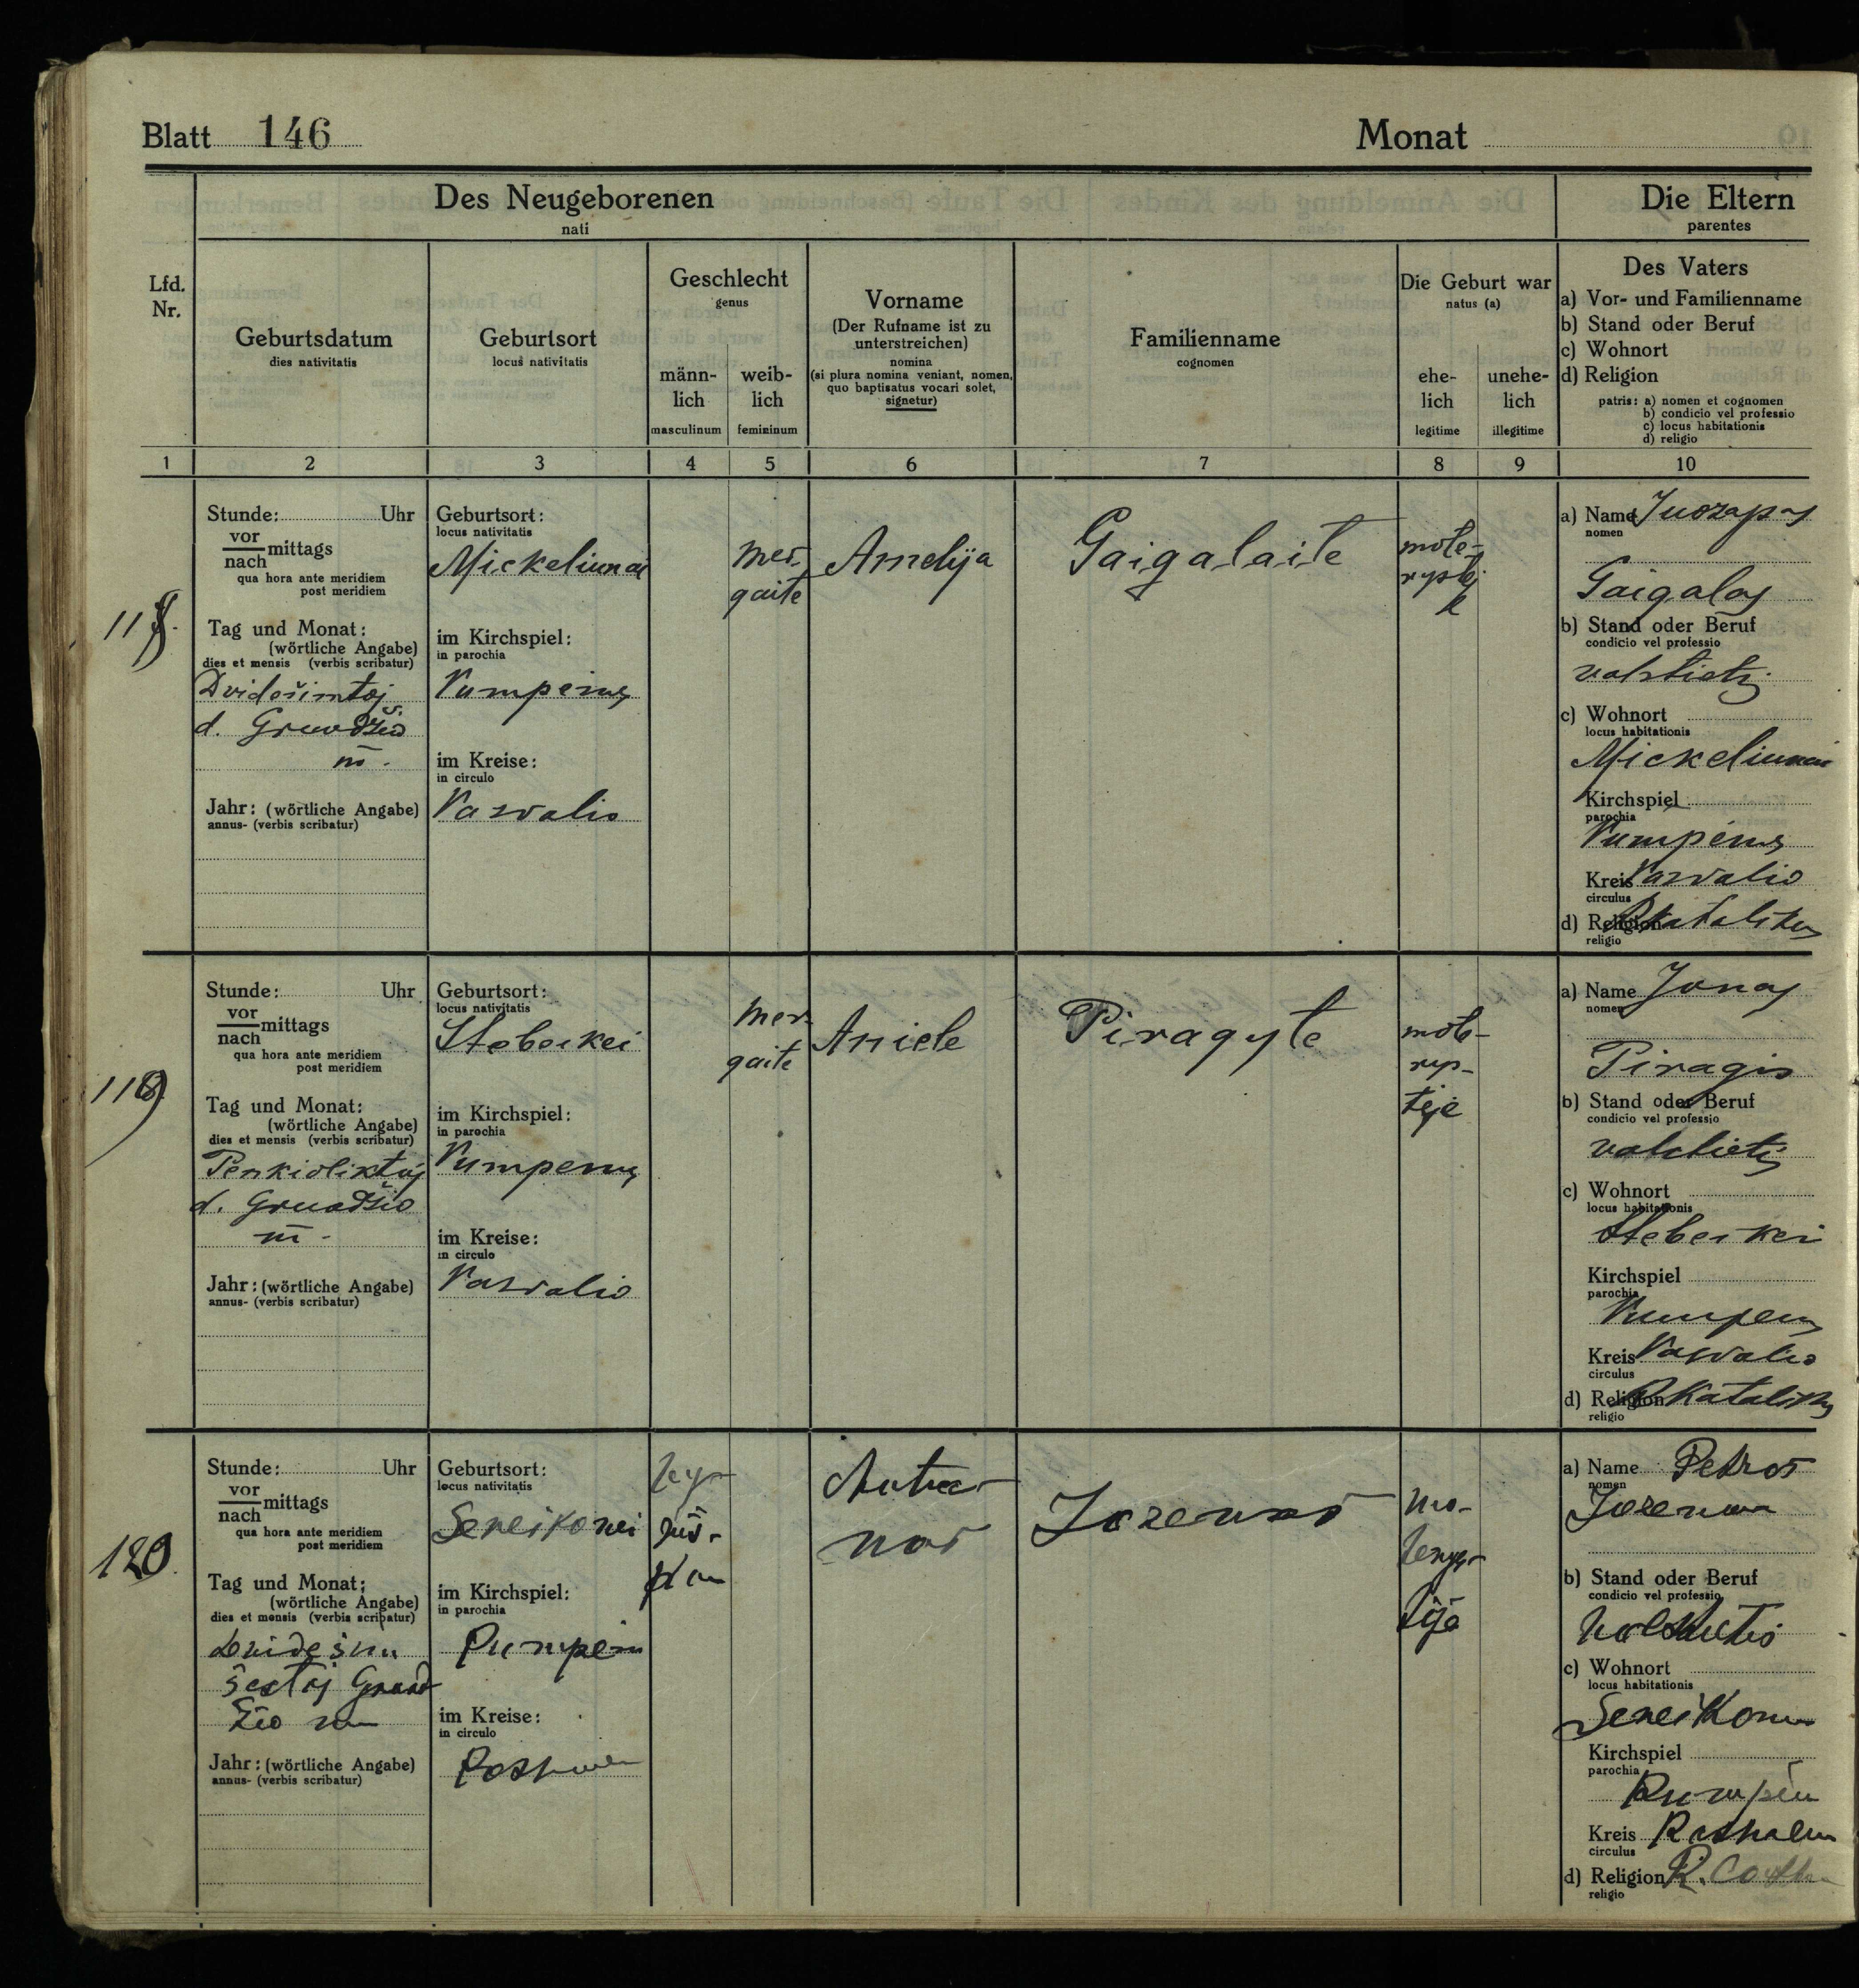 Blatt 146
Monat
Des Neugeborenen
nati
Die Eltern
parentes
Lfd.
Nr.
Geburtsdatum
dies nativitatis
Geburtsort
locus nativitatis
Geschlecht
genus
männ-
lich
masculinum
weib-
lich
femininum
Vorname
(Der Rufname ist zu
unterstreichen)
nomina
(si plura nomina veniant, nomen,
quo baptisatus vocari solet,
signetur)
Familienname
cognomen
Die Geburt war
natus (a)
ehe-
lich
legitime
unehe-
lich
illegitime
Des Vaters
a) Vor- und Familienname
b) Stand oder Beruf
c) Wohnort
d) Religion
patris: a) nomen et cognomen
b) condicio vel professio
c) locus habitationis
d) religio
1 2 3 4 5 6 7 8 9 10
Stunde: Uhr
vor
nach mittags
qua hora ante meridiem
post meridiem
Tag und Monat:
(wörtliche Angabe)
dies et mensis (verbis scribatur)
Dvidešimtoj
d. Gruodžio
m.
Jahr: (wörtliche Angabe)
annus- (verbis scribatur)
Geburtsort:
locus nativitatis
Mickeliunai
im Kirchspiel:
in parochia
Pumpenų
im Kreise:
in circulo
Pasvalio
mer-
gaite
Amelija
Gaigalaite
mote-
a) Name Juozapas
nomen
Gaigalas
b) Stand oder Beruf
condicio vel professio
c) Wohnort
locus habitationis
Mickeliunai
Kirchspiel
parochia
Pumpenų
Kreis Pasvalio
circulus
d) Religion R katalikas
religio
Stunde: Uhr
vor
nach mittags
qua hora ante meridiem
post meridiem
Tag und Monat:
(wörtliche Angabe)
dies et mensis (verbis scribatur)
Penkioliktoj
d. Gruodžio
m.
Jahr: (wörtliche Angabe)
annus- (verbis scribatur)
Geburtsort:
locus nativitatis
Stebeikei
im Kirchspiel:
in parochia
Pumpenų
im Kreise:
in circulo
Pasvalio
mer-
gaite
Aniele
Piragyte
mote-
rys-
teje
a) Name Jonas
nomen
Piragis
b) Stand oder Beruf
condicio vel professio
c) Wohnort
locus habitationis
Stebeikei
Kirchspiel
parochia
Pumpenų
Kreis Pasvalio
circulus
d) Religion R Katalikas
religio
120.
Stunde: Uhr
vor
nach mittags
qua hora ante meridiem
post meridiem
Tag und Monat:
(wörtliche Angabe)
dies et mensis (verbis scribatur)
šeštoj Gruod
žio
Jahr: (wörtliche Angabe)
annus- (verbis scribatur)
Geburtsort:
locus nativitatis
Sereikonei
im Kirchspiel:
in parochia
im Kreise:
in circulo
Anta-
nas
Jozenas
mo-
a) Name Petras
nomen
Jozenas
b) Stand oder Beruf
condicio vel professio
c) Wohnort
locus habitationis
Kirchspiel
parochia
Kreis
circulus
d) Religion
religio